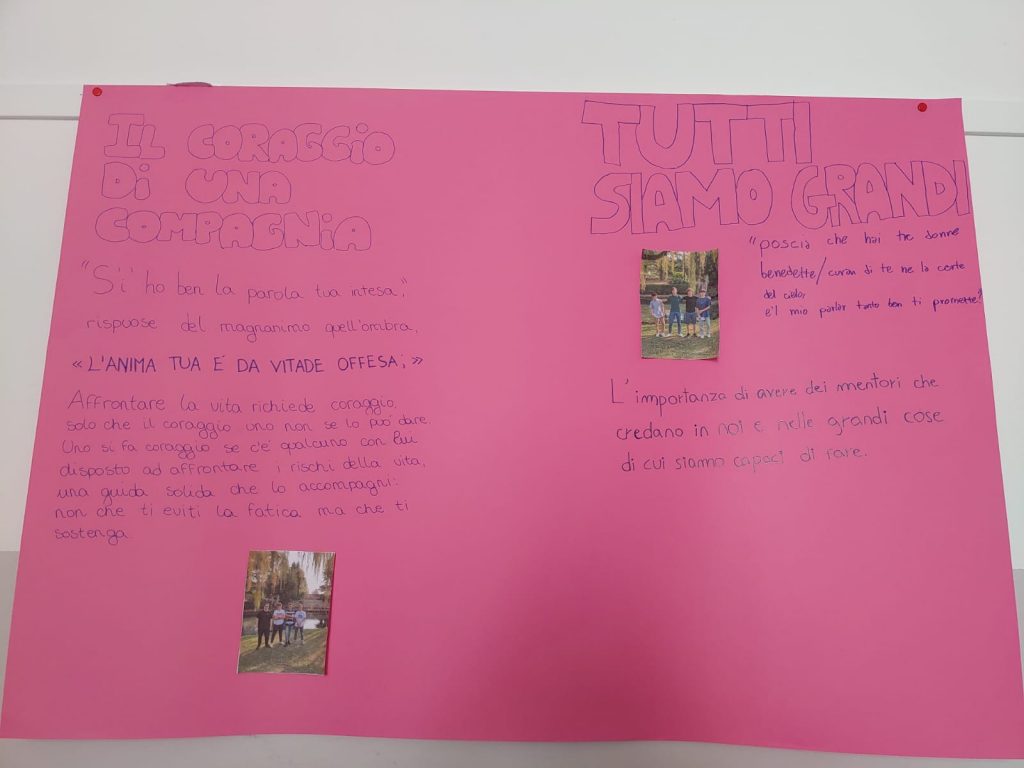 IL CORAGGIO
DI UNA
COMPAGNIA
"S'i' ho ben la parola tua intesa,"
rispuose del magnanimo quell'ombra,
«L'ANIMA TUA È DA VITADE OFFESA;»
Affrontare la vita richiede coraggio,
solo che il coraggio uno non se lo può dare.
Uno si fa coraggio se c'è qualcuno con lui
disposto ad affrontare i rischi della vita,
una guida solida che lo accompagni:
non che ti eviti la fatica ma che ti
sostenga.
TUTTI
SIAMO GRANDI
"poscia che hai tre donne
benedette/curan di te ne la corte
del cielo,
e'l mio parlar tanto ben ti promette?"
L'importanza di avere dei mentori che
credano in noi e nelle grandi cose
di cui siamo capaci di fare.